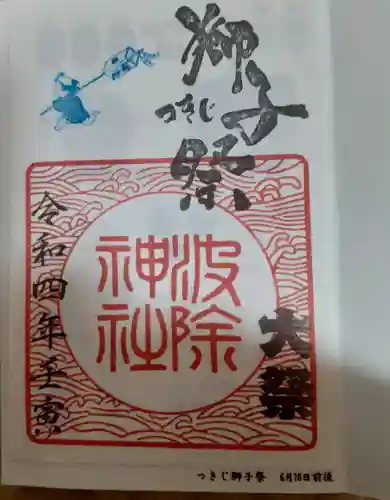 獅子祭
つきじ
大祭
波除
神社
令和四年壬寅
つきじ獅子祭 6月10日前後